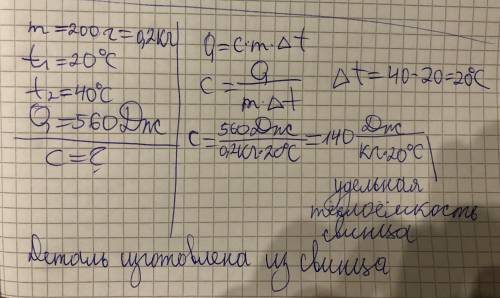 m = 200 г = 0,2 кг
t₁ = 20°C
t₂ = 40°C
Q = 560 Дж
c = ?
Q = c·m·Δt
c = Q / m·Δt
Δt = 40 - 20 = 20°C
c = 560 Дж / 0,2 кг·20°C = 140 Дж / кг·20°C
удельная
теплоёмкость
свинца
Деталь изготовлена из свинца